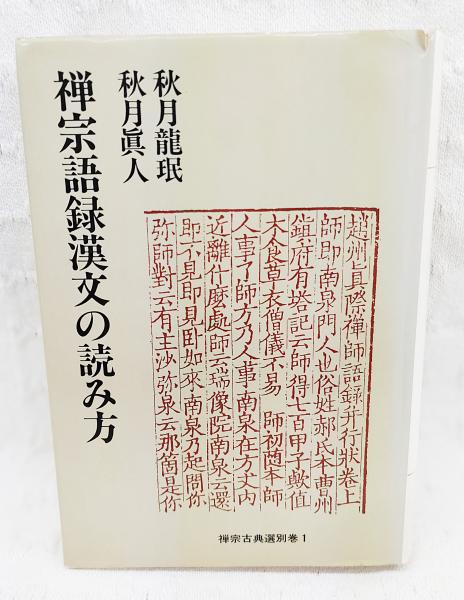 秋月龍珉
秋月眞人
禅宗語録漢文の読み方
趙州真際禅師語録并行状巻上
師即南泉門人也俗姓郝氏本曹州
鎮府有塔記云師得七百甲子歟値
木食草衣僧儀不易　師初随本師
人事了師方乃人事南泉在方丈内
近離什麼處師云瑞像院南泉云還
即不見即見臥如来南泉乃起問你
弥師對云有主沙弥泉云那箇是你
禅宗古典選別巻1